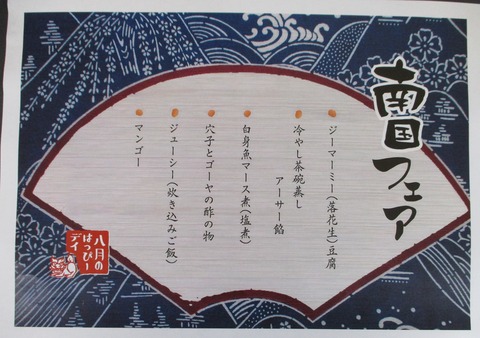 南国フェア
ジーマーミー(落花生)豆腐
冷やし茶碗蒸し
アーサー餡
白身魚マース煮(塩煮)
穴子とゴーヤの酢の物
ジューシー(炊き込みご飯)
マンゴー
八月の
はっぴー
デイ